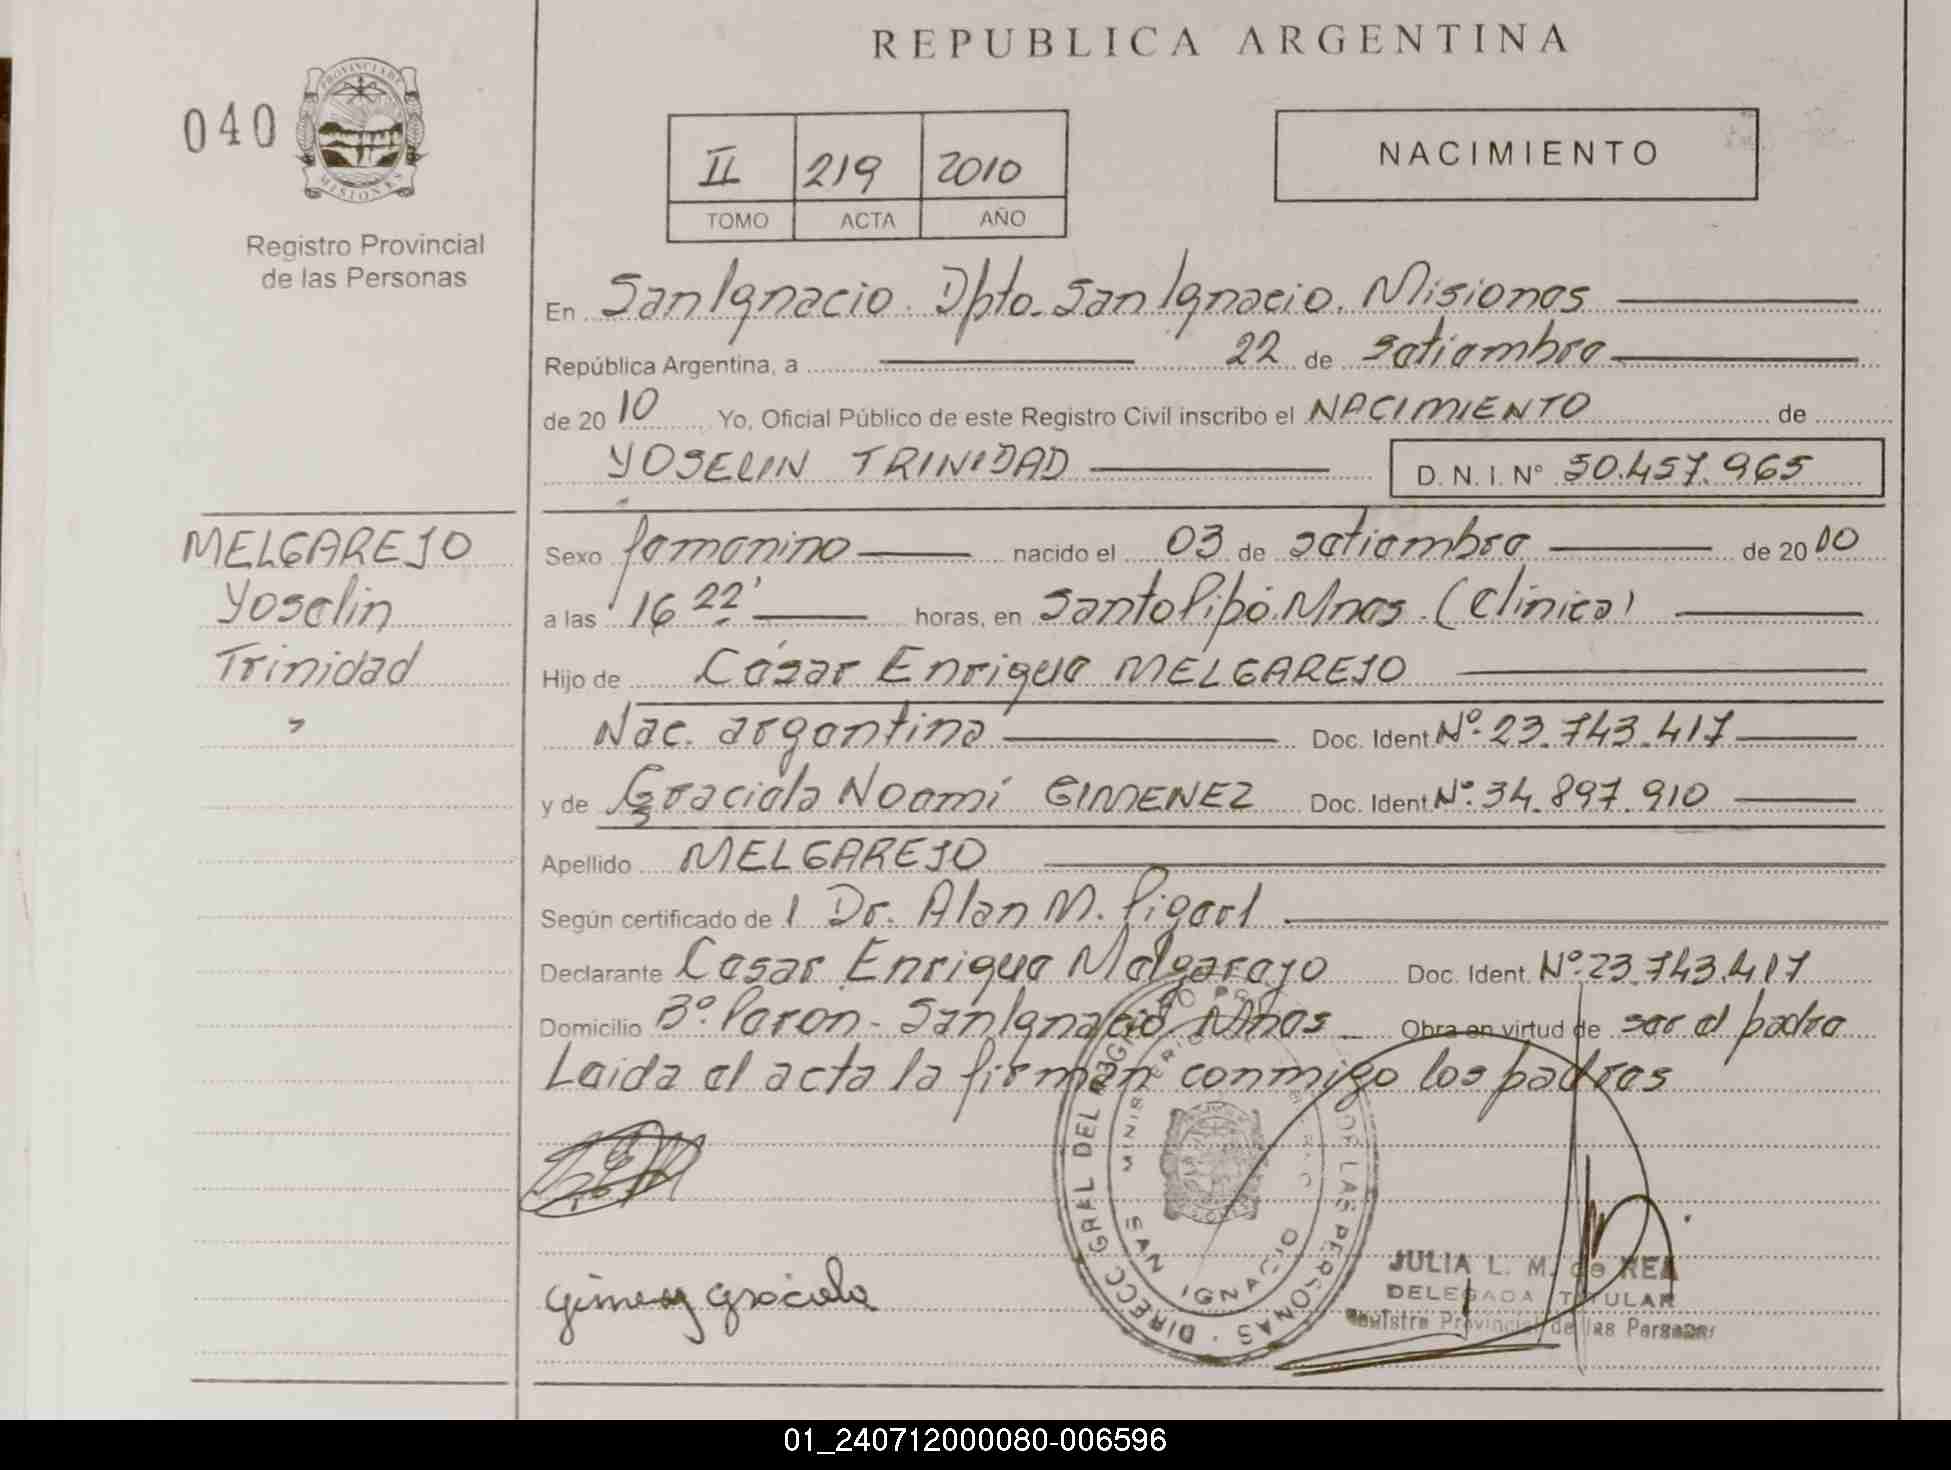 REPUBLICA ARGENTINA
040
PROVINCIA DE
MISIONES
Registro Provincial
de las Personas
II 219 2010
TOMO ACTA AÑO
NACIMIENTO
En San Ignacio. Dpto. San Ignacio. Misiones
República Argentina, a 22 de setiembre
de 20 10 Yo, Oficial Público de este Registro Civil inscribo el NACIMIENTO de
YOSELIN TRINIDAD D. N. I. N° 50.457.965
MELGAREJO
Yoselin
Trinidad
Sexo femenino nacido el 03 de setiembre de 20 00
a las 16 22' horas, en Santo Pipó. Mnes. (Clínica)
Hijo de César Enrique MELGAREJO
Nac. argentina Doc. Ident. Nº. 23.743.417
y de Graciela Noemí GIMENEZ Doc. Ident. Nº. 34.897.910
Apellido MELGAREJO
Según certificado de Dr. Alan M.
Declarante Cesar Enrique Melgarejo Doc. Ident. Nº. 23.743.417
Domicilio Bº. - San Ignacio Mnes Obra en virtud de ser el padre
Leida el acta la firman conmigo los padres
DIRECC GRAL DEL REGISTRO DE LAS PERSONAS
SAN IGNACIO
Graciela
JULIA L. M. de REA
DELEGADA TITULAR
Registro Provincial de las Personas
01_240712000080-006596